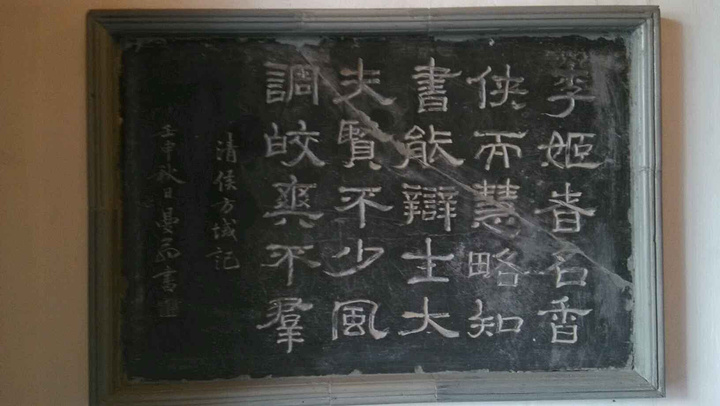 李姬者名香
俠而慧略知
書能辯士大
夫賢不少風
調皎爽不羣
清侯方域記
壬申秋日曼翁書